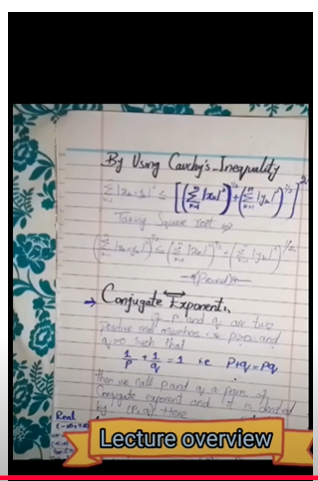 By Using Cauchy's Inequality
Σ |xₙ+yₙ|² ≤ [(Σ |xₙ|²)^½ + (Σ |yₙ|²)^½]²
Taking Square root ⇒
(Σ |xₙ+yₙ|²)^½ ≤ (Σ |xₙ|²)^½ + (Σ |yₙ|²)^½
(Proved)
→ Conjugate Exponent:
If P and q are two
positive real numbers i.e P>0 and
q>0 such that
1/P + 1/q = 1 i.e P+q = Pq
then we call p and q a pair of
Conjugate exponent and it is denoted
by (P, q). Here
Real
Lecture overview